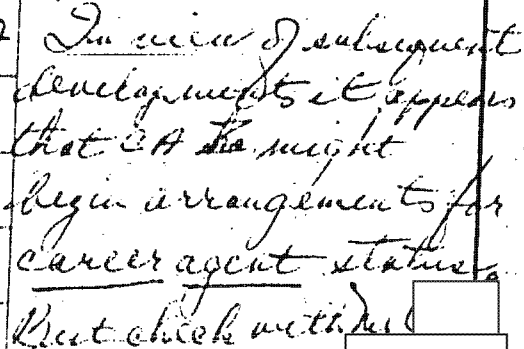 In view of subsequent
developments it appears
that CA might
begin arrangements for
career agent status.
But check with